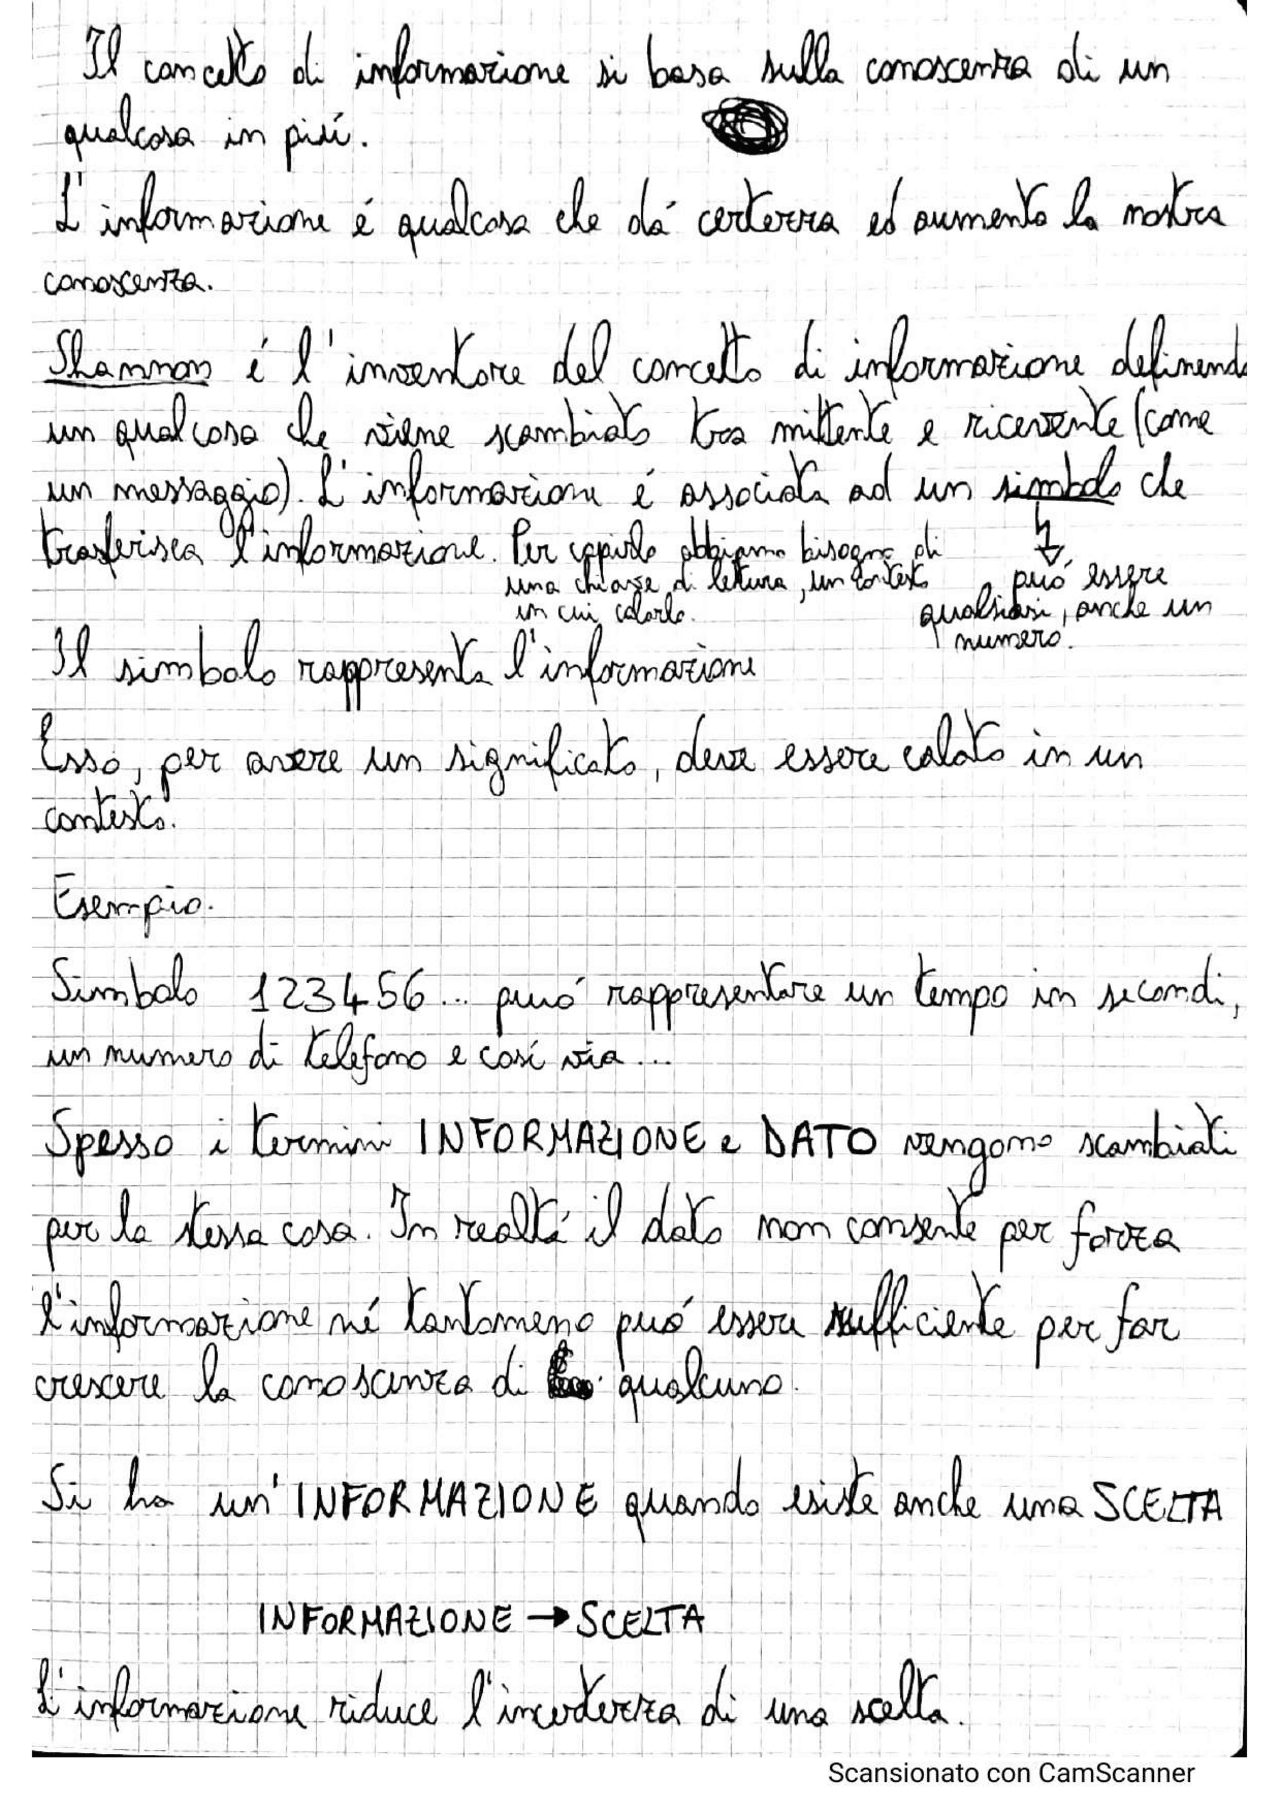 Il concetto di informazione si basa sulla conoscenza di un
qualcosa in piú.
L'informazione é qualcosa che dá certezza ed aumenta la nostra
conoscenza.
Shannon é l'inventore del concetto di informazione definendo
un qualcosa che viene scambiato tra mittente e ricevente (come
un messaggio). L'informazione é associata ad un simbolo che
trasferisca l'informazione. Per capirlo abbiamo bisogno di
una chiave di lettura, un contesto
in cui calarlo.
può essere
qualsiasi, anche un
numero.
Il simbolo rappresenta l'informazione
Esso, per avere un significato, deve essere calato in un
contesto.
Esempio.
Simbolo 123456... puó rappresentare un tempo in secondi,
un numero di telefono e cosí via...
Spesso i termini INFORMAZIONE e DATO vengono scambiati
per la stessa cosa. In realtá il dato non consente per forza
l'informazione né tantomeno puó essere sufficiente per far
crescere la conoscenza di qualcuno.
Si ha un'INFORMAZIONE quando esiste anche una SCELTA
INFORMAZIONE → SCELTA
L'informazione riduce l'incertezza di una scelta.
Scansionato con CamScanner